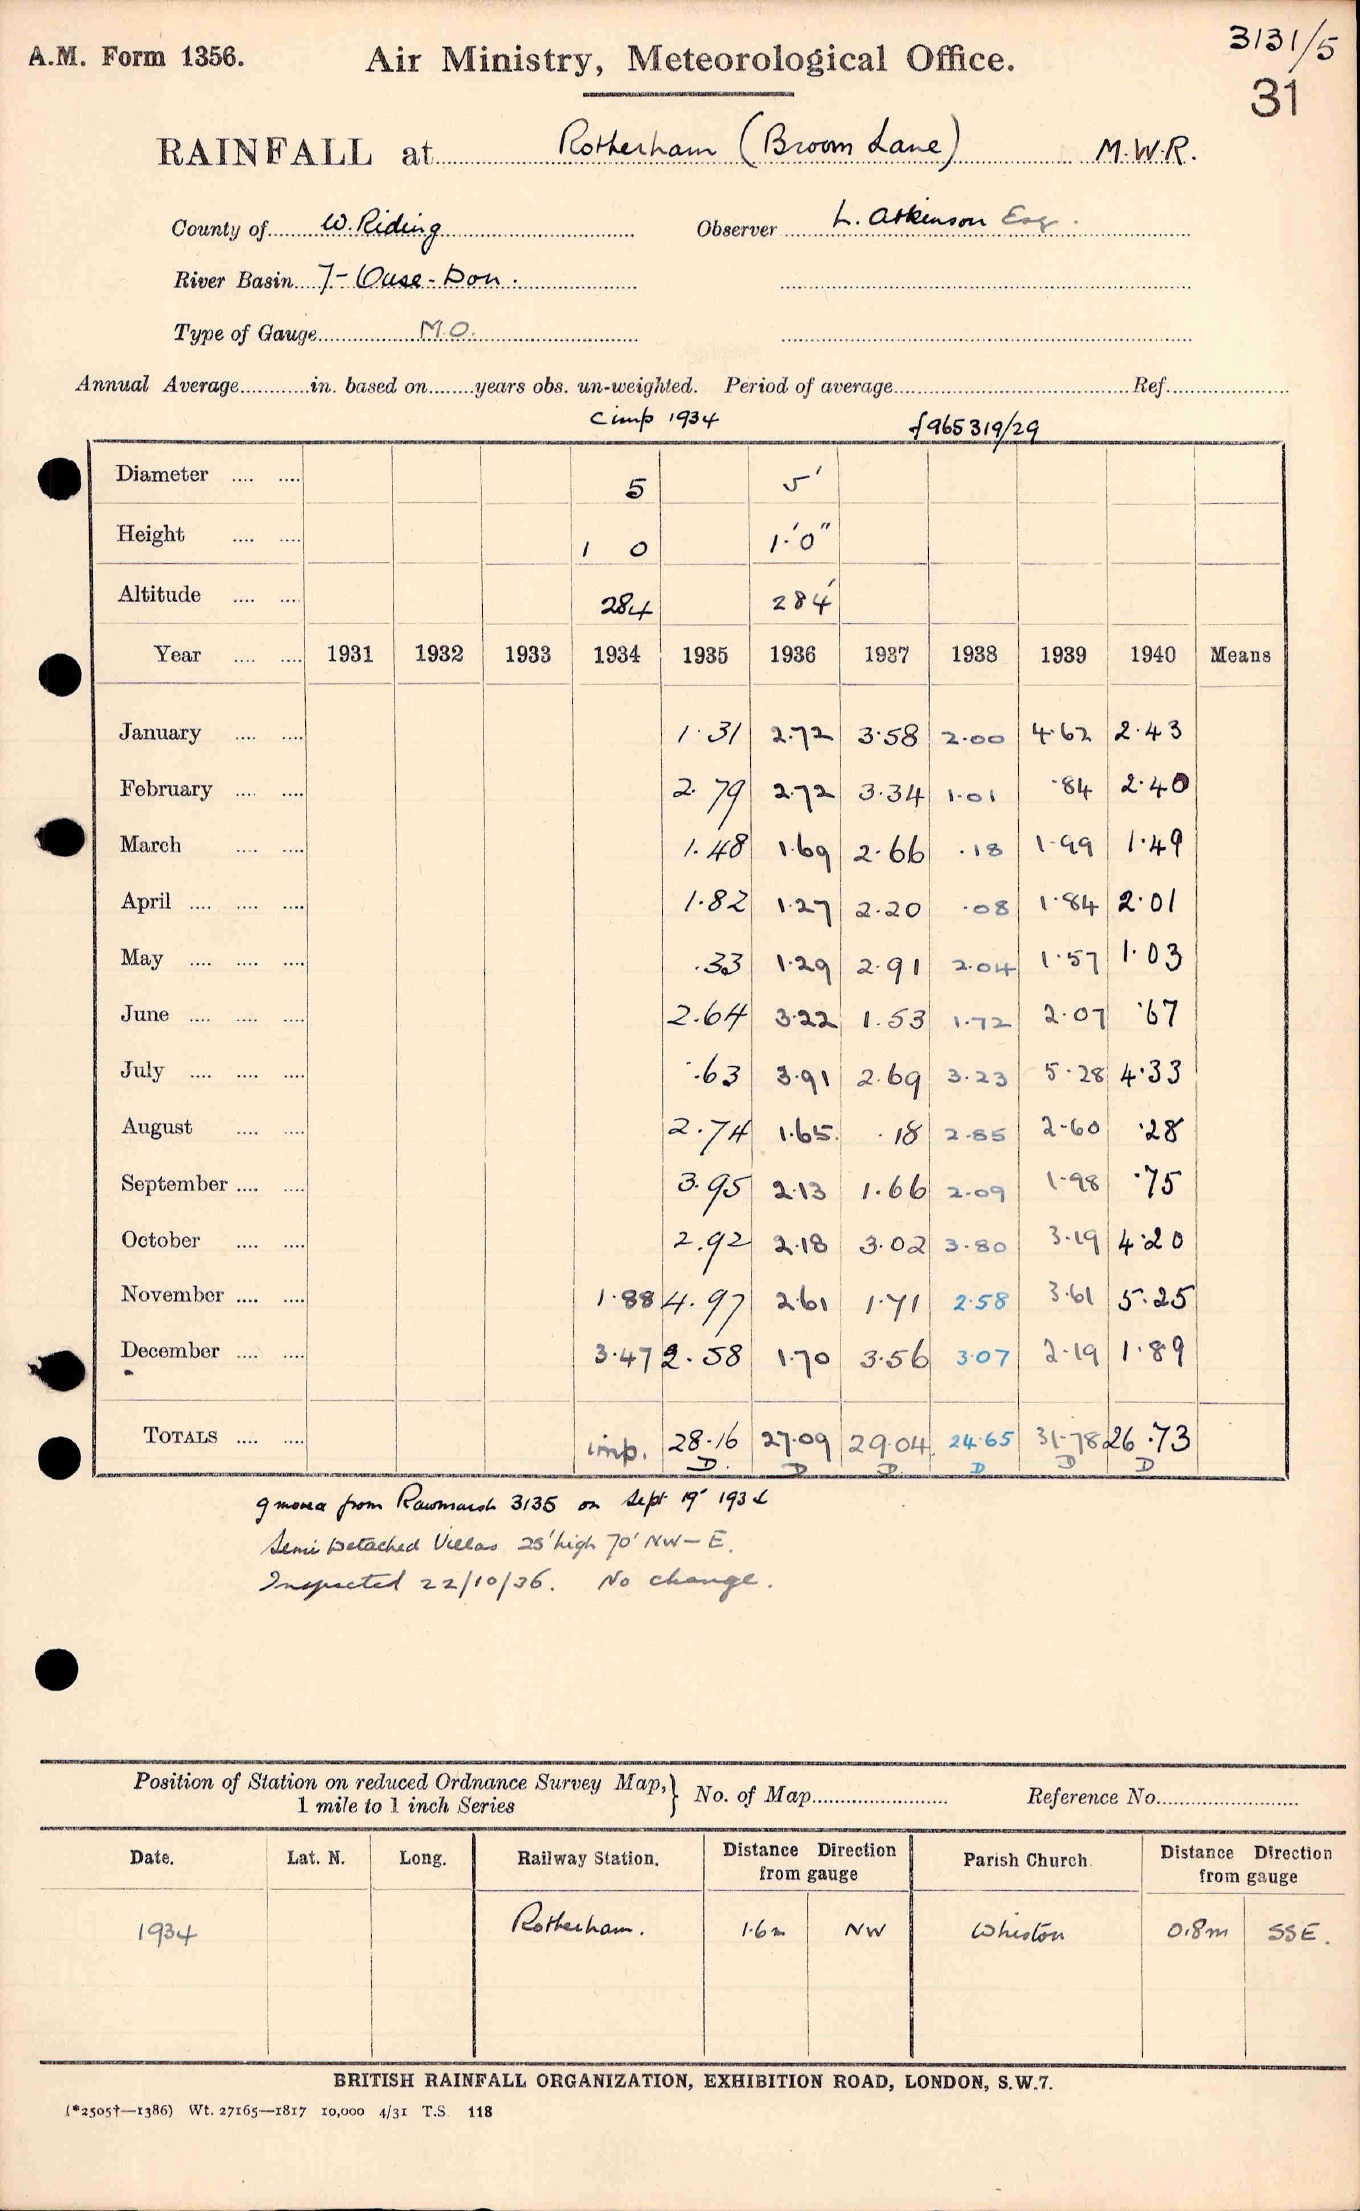 3131/5
A.M. Form 1356. Air Ministry, Meteorological Office.
31
RAINFALL at Rotherham (Broom Lane) M.W.R.
County of W. Riding Observer L. Atkinson Esq.
River Basin 7- Ouse-Don.
Type of Gauge M.O.
Annual Average in. based on years obs. un-weighted. Period of average Ref.
imp 1934 965319/29
Diameter 5 5'
Height 1 0 1'.0"
Altitude 284 284'
Year 1931 1932 1933 1934 1935 1936 1937 1938 1939 1940 Means
January 1.31 2.72 3.58 2.00 4.62 2.43
February 2.79 2.72 3.34 1.01 .84 2.40
March 1.48 1.69 2.66 .18 1.99 1.49
April 1.82 1.27 2.20 .08 1.84 2.01
May .33 1.29 2.91 2.04 1.57 1.03
June 2.64 3.22 1.53 1.72 2.07 .67
July .63 3.91 2.69 3.23 5.28 4.33
August 2.74 1.65 .18 2.85 2.60 .28
September 3.95 2.13 1.66 2.09 1.98 .75
October 2.92 2.18 3.02 3.80 3.19 4.20
November 1.88 4.97 2.61 1.71 2.58 3.61 5.25
December 3.47 2.58 1.70 3.56 3.07 2.19 1.89
TOTALS imp. 28.16 27.09 29.04 24.65 31.78 26.73
D D D D D D
g moved from Rawmarsh 3135 on Sept 19 1934
Semi Detached Villas 25' high 70' NW-E.
Inspected 22/10/36. No change.
Position of Station on reduced Ordnance Survey Map,} No. of Map Reference No.
1 mile to 1 inch Series
Date. Lat. N. Long. Railway Station. Distance Direction from gauge Parish Church Distance Direction from gauge
1934 Rotherham. 1.6m NW Whiston 0.8m SSE.
BRITISH RAINFALL ORGANIZATION, EXHIBITION ROAD, LONDON, S.W.7.
(*2505†—1386) Wt. 27165—1817 10,000 4/31 T.S. 118